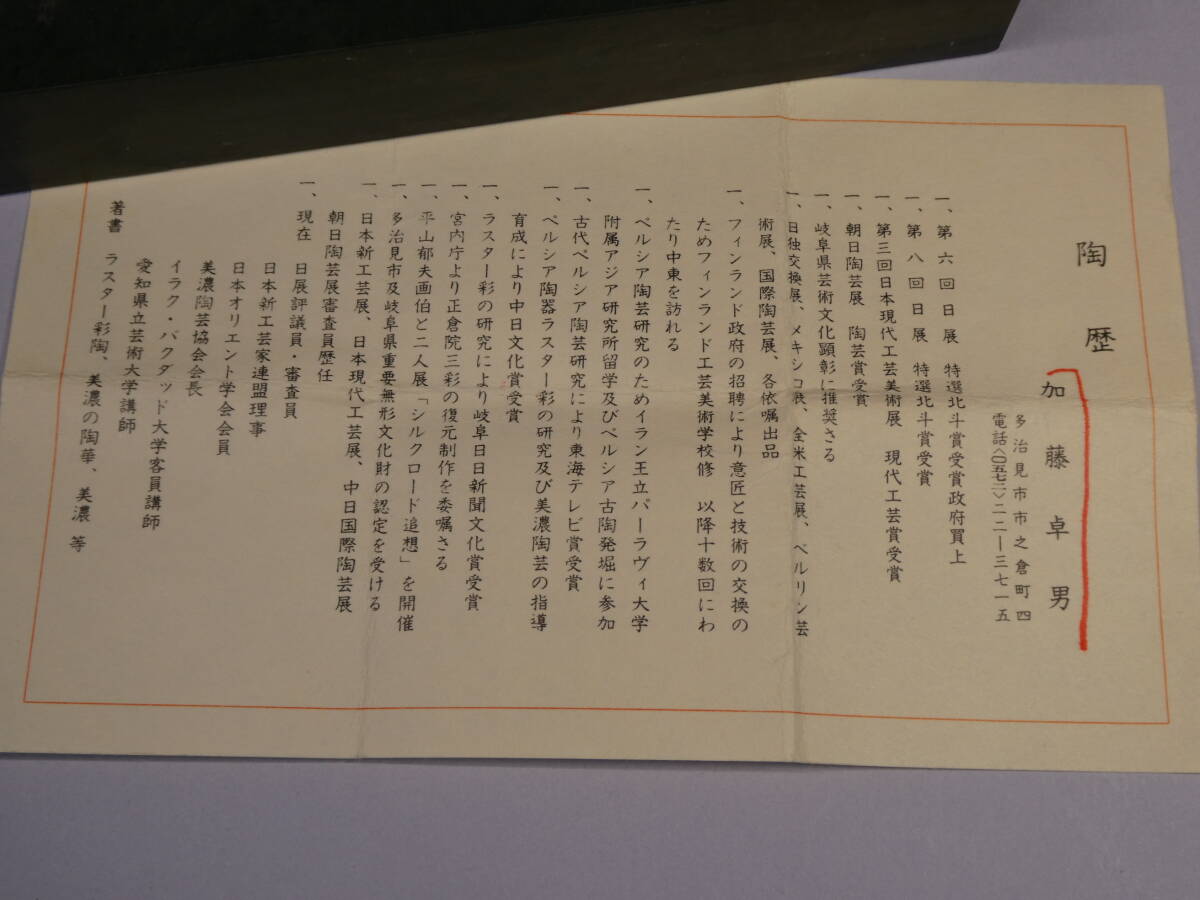 陶歴
加藤卓男
多治見市市之倉町四
電話〈〇五七二〉二二ー三七一五
一、第六回日展 特選北斗賞受賞政府買上
一、第八回日展 特選北斗賞受賞
一、第三回日本現代工芸美術展 現代工芸賞受賞
一、朝日陶芸展 陶芸賞受賞
一、岐阜県芸術文化顕彰に推奨さる
一、日独交換展、メキシコ展、全米工芸展、ベルリン芸
術展、国際陶芸展、各依嘱出品
一、フィンランド政府の招聘により意匠と技術の交換の
ためフィンランド工芸美術学校修 以降十数回にわ
たり中東を訪れる
一、ペルシア陶芸研究のためイラン王立パーラヴィ大学
附属アジア研究所留学及びペルシア古陶発掘に参加
一、古代ペルシア陶芸研究により東海テレビ賞受賞
一、ペルシア陶器ラスター彩の研究及び美濃陶芸の指導
育成により中日文化賞受賞
一、ラスター彩の研究により岐阜日日新聞文化賞受賞
一、宮内庁より正倉院三彩の復元制作を委嘱さる
一、平山郁夫画伯と二人展「シルクロード追想」を開催
一、多治見市及岐阜県重要無形文化財の認定を受ける
一、日本新工芸展、日本現代工芸展、中日国際陶芸展
朝日陶芸展審査員歴任
一、現在 日展評議員・審査員
日本新工芸家連盟理事
日本オリエント学会会員
美濃陶芸協会会長
イラク・バクダッド大学客員講師
愛知県立芸術大学講師
著書 ラスター彩陶、美濃の陶華、美濃 等